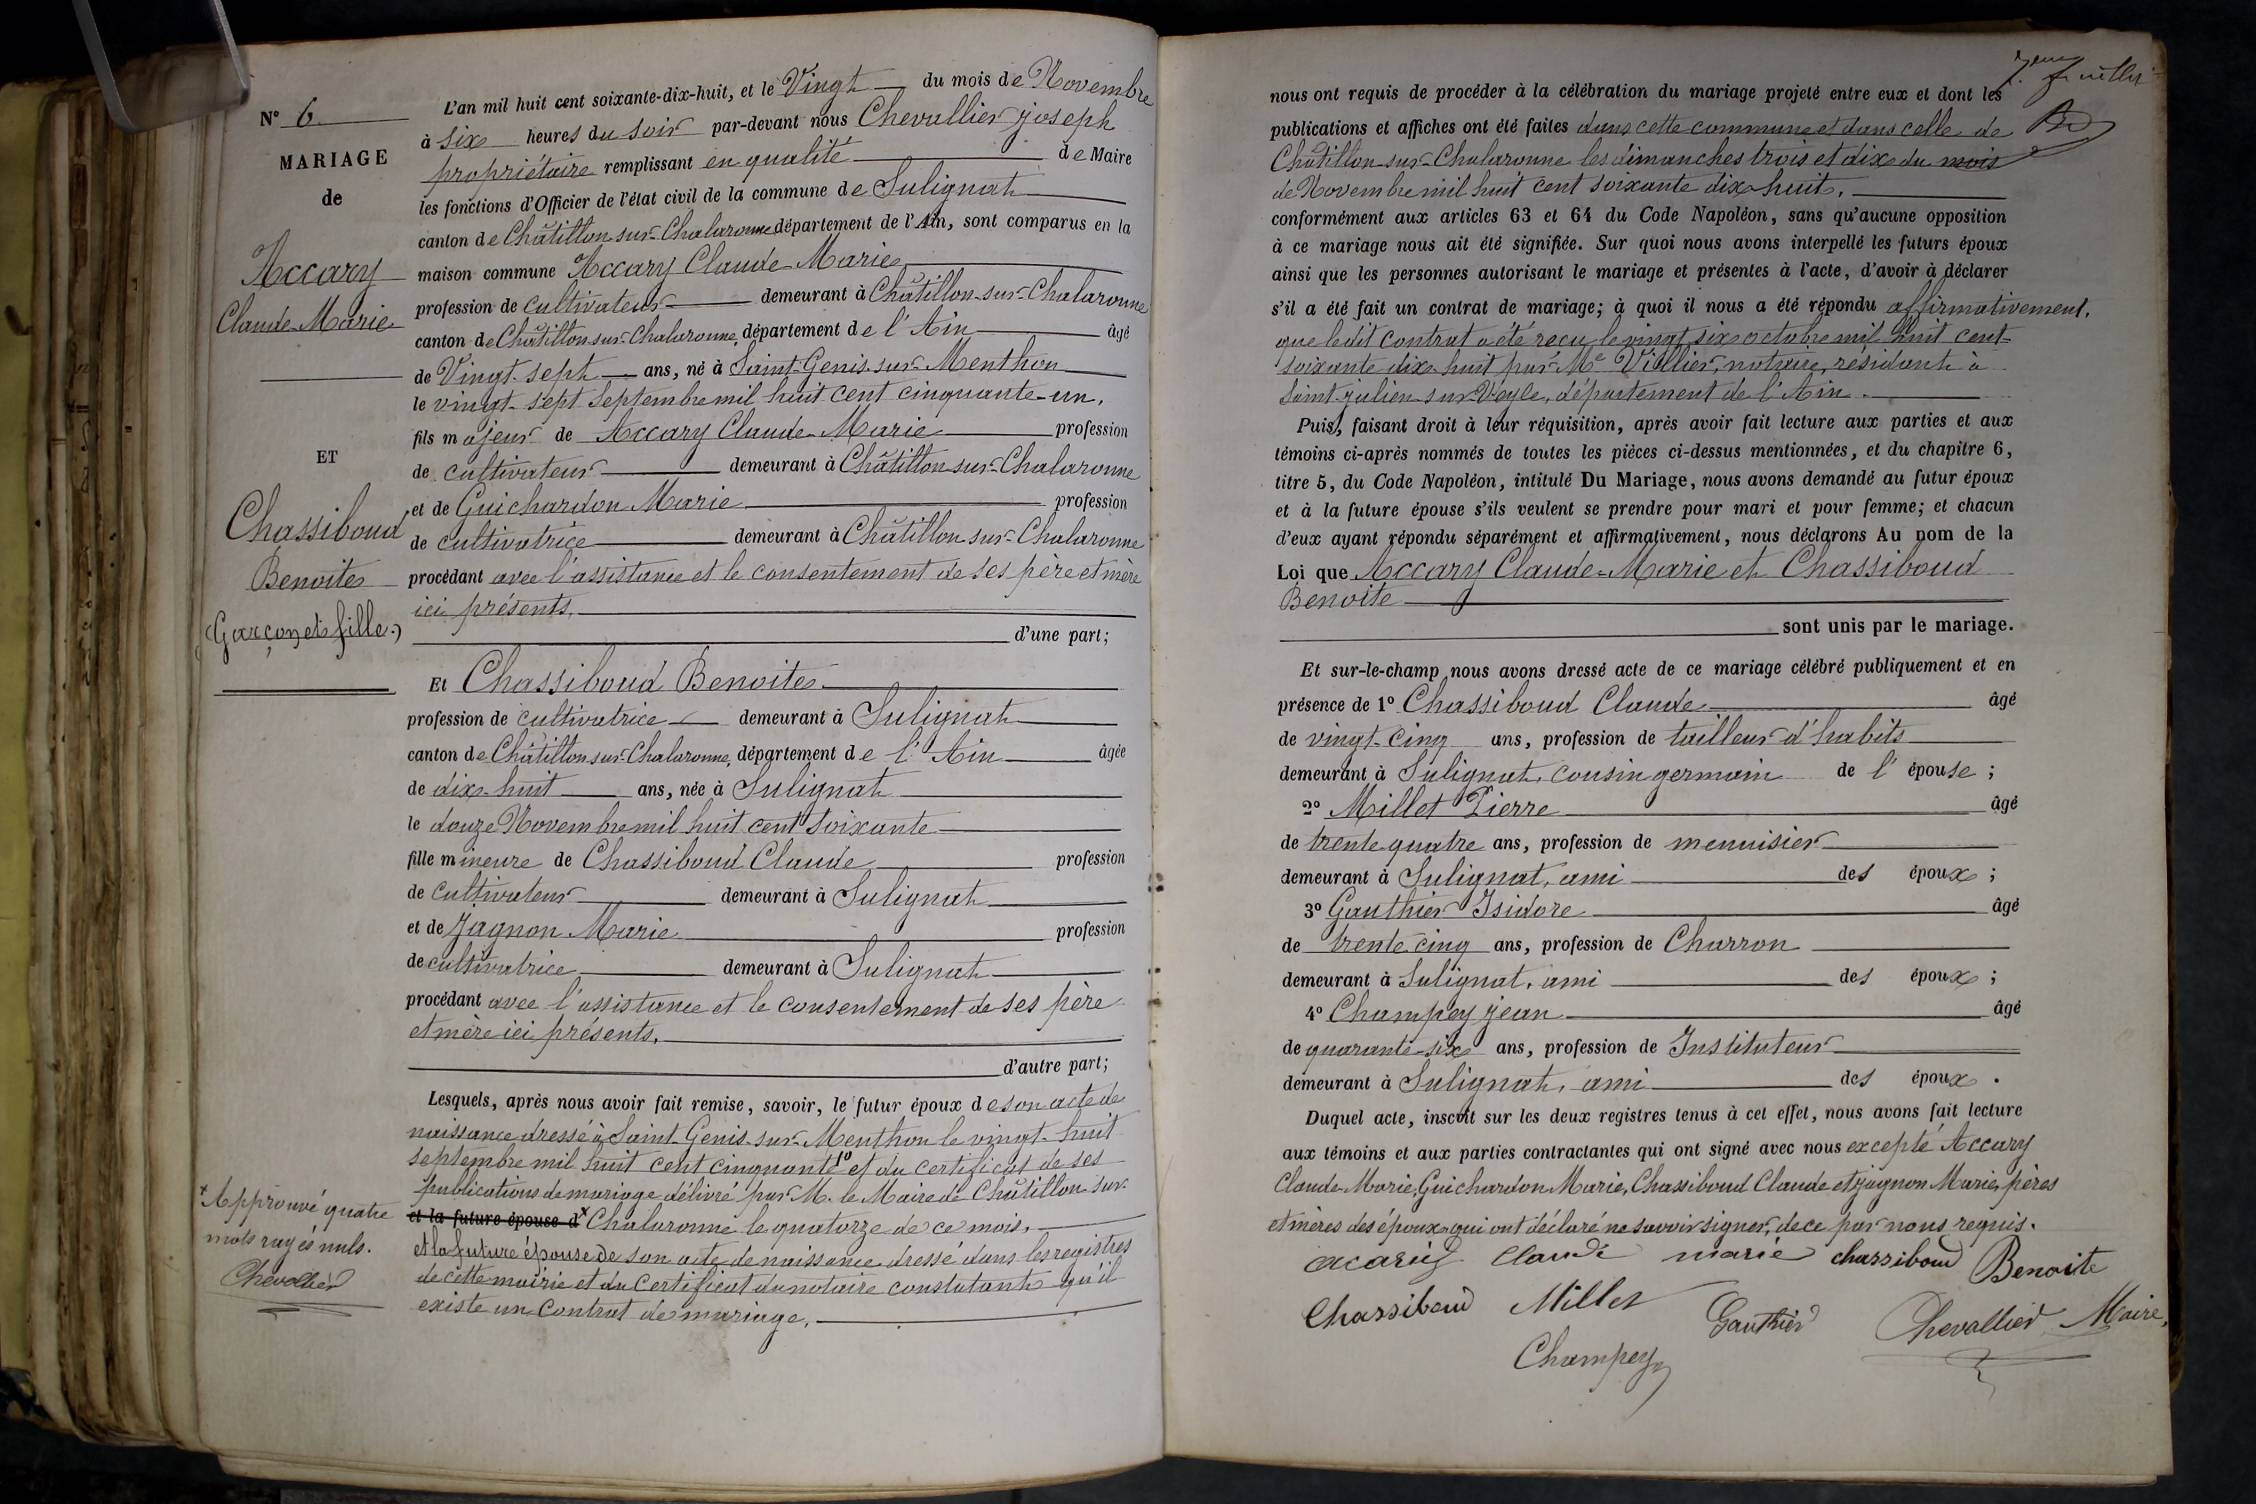 N° 6
MARIAGE
de
Accary
Claude-Marie
ET
Chassiboud
Benoite
(Garçon et fille.)
x Approuvé quatre
mots rayés nuls.
Chevallier
L'an mil huit cent soixante-dix-huit, et le Vingt du mois de Novembre
à six heures du soir par-devant nous Chevallier joseph
propriétaire remplissant en qualité de Maire
les fonctions d'Officier de l'état civil de la commune de Sulignat
canton de Châtillon-sur-Chalaronne département de l'Ain, sont comparus en la
maison commune Accary Claude-Marie
profession de cultivateur demeurant à Châtillon-sur-Chalaronne
canton de Châtillon-sur-Chalaronne, département de l'Ain âgé
de Vingt-sept ans, né à Saint-Genis-sur-Menthon
le vingt-sept Septembre mil huit cent cinquante-un.
fils majeur de Accary Claude-Marie profession
de cultivateur demeurant à Châtillon-sur-Chalaronne
et de Guichardon Marie profession
de cultivatrice demeurant à Châtillon-sur-Chalaronne
procédant avec l'assistance et le consentement de ses père et mère
ici présents.
d'une part;
Et Chassiboud Benoite
profession de cultivatrice demeurant à Sulignat
canton de Châtillon-sur-Chalaronne, département de l'Ain âgée
de dix-huit ans, née à Sulignat
le douze Novembre mil huit cent soixante
fille mineure de Chassiboud Claude profession
de cultivateur demeurant à Sulignat
et de Jagnon Marie profession
de cultivatrice demeurant à Sulignat
procédant avec l'assistance et le consentement de ses père
et mère ici présents.
d'autre part;
Lesquels, après nous avoir fait remise, savoir, le futur époux de son acte de
naissance dressé à Saint-Genis-sur-Menthon le vingt-huit
septembre mil huit cent cinquante et du certificat de ses
publications de mariage délivré par M. le Maire de Châtillon-sur-
et la future épouse d x Chalaronne le quatorze de ce mois.
et la future épouse de son acte de naissance dressé dans les registres
de cette mairie et du Certificat du notaire constatant qu'il
existe un Contrat de mariage.
7eme feuillet
nous ont requis de procéder à la célébration du mariage projeté entre eux et dont les
publications et affiches ont été faites dans cette commune et dans celle de
Châtillon-sur-Chalaronne les dimanches trois et dix du mois
de Novembre mil huit cent soixante dix-huit.
conformément aux articles 63 et 64 du Code Napoléon, sans qu'aucune opposition
à ce mariage nous ait été signifiée. Sur quoi nous avons interpellé les futurs époux
ainsi que les personnes autorisant le mariage et présentes à l'acte, d'avoir à déclarer
s'il a été fait un contrat de mariage; à quoi il nous a été répondu affirmativement.
que ledit contrat a été reçu le vingt six octobre mil huit cent
soixante dix-huit par Me Viollier, notaire, résidant à
Saint-julien-sur-Veyle, département de l'Ain.
Puis, faisant droit à leur réquisition, après avoir fait lecture aux parties et aux
témoins ci-après nommés de toutes les pièces ci-dessus mentionnées, et du chapitre 6,
titre 5, du Code Napoléon, intitulé Du Mariage, nous avons demandé au futur époux
et à la future épouse s'ils veulent se prendre pour mari et pour femme; et chacun
d'eux ayant répondu séparément et affirmativement, nous déclarons Au nom de la
Loi que Accary Claude-Marie et Chassiboud
Benoite
sont unis par le mariage.
Et sur-le-champ nous avons dressé acte de ce mariage célébré publiquement et en
présence de 1° Chassiboud Claude âgé
de vingt-cinq ans, profession de tailleur d'habits
demeurant à Sulignat, cousin germain de l'épouse;
2° Millet Pierre âgé
de trente quatre ans, profession de menuisier
demeurant à Sulignat, ami des époux;
3° Gauthier Isidore âgé
de trente cinq ans, profession de Charron
demeurant à Sulignat, ami des époux;
4° Champey jean âgé
de quarante-six ans, profession de Instituteur
demeurant à Sulignat, ami des époux.
Duquel acte, inscrit sur les deux registres tenus à cet effet, nous avons fait lecture
aux témoins et aux parties contractantes qui ont signé avec nous excepté Accary
Claude-Marie, Guichardon Marie, Chassiboud Claude et jagnon Marie, pères
et mères des époux qui ont déclaré ne savoir signer, de ce par nous requis.
acariy Claude marie chassiboud Benoite
Chassiboud Millet Gauthier Chevallier Maire,
Champey